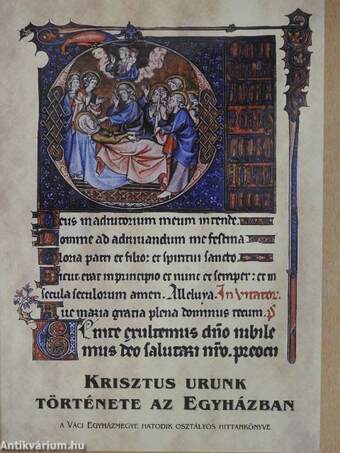 eus in adiutorium meum intende.
omine ad adiuuandum me festina
loria patri et filio: et spiritui sancto
icut erat in principio et nunc et semper: et in
secula seculorum amen. Alleluya. Inuitator.
ue maria gracia plena dominus tecum. P̄
enite exultemus dño iubile
mus deo salutari nrō. preocu
KRISZTUS URUNK
TÖRTÉNETE AZ EGYHÁZBAN
A VÁCI EGYHÁZMEGYE HATODIK OSZTÁLYOS HITTANKÖNYVE
Antikvárium.hu